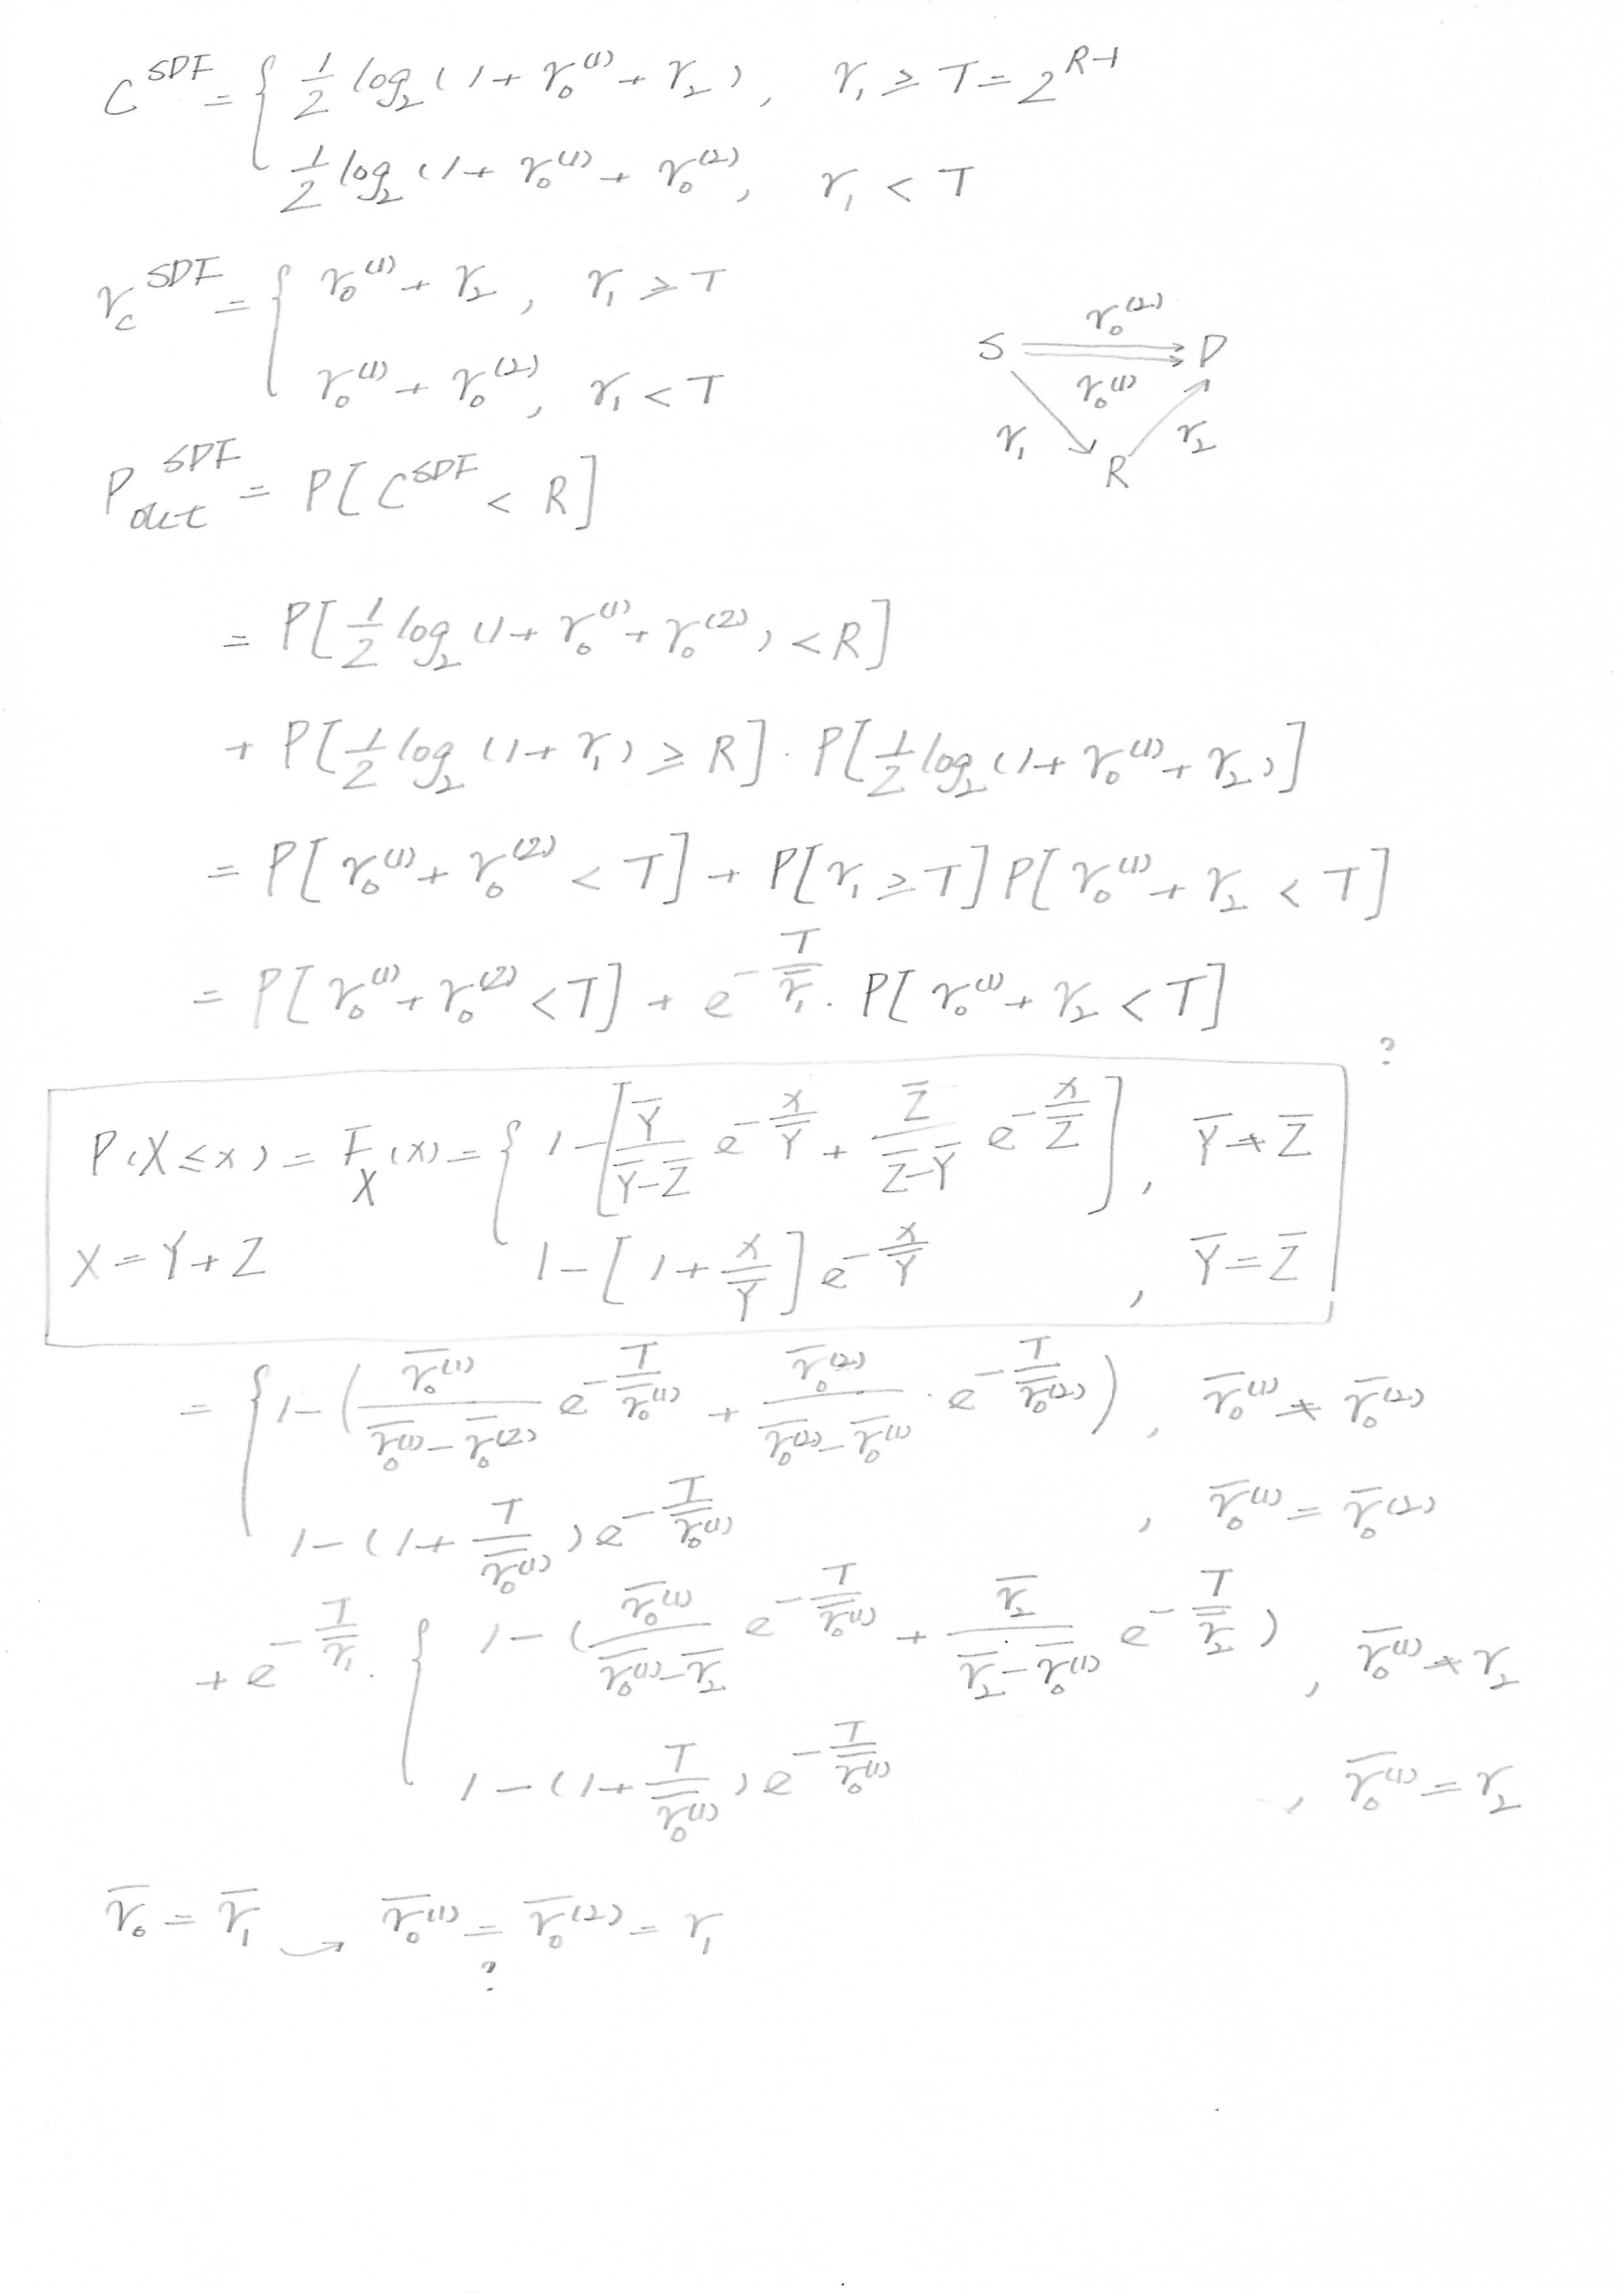 C^{SDF} = { 1/2 log₂(1 + γ₀^{(1)} + γ₂), γ₁ ≥ T = 2^{R-1}
1/2 log₂(1 + γ₀^{(1)} + γ₀^{(2)}, γ₁ < T
γ_c^{SDF} = { γ₀^{(1)} + γ₂, γ₁ ≥ T
γ₀^{(1)} + γ₀^{(2)}, γ₁ < T
γ₀^{(2)}
S D
γ₀^{(1)}
γ₁ γ₂
R
P_{out}^{SDF} = P[C^{SDF} < R]
= P[1/2 log₂(1 + γ₀^{(1)} + γ₀^{(2)}) < R]
+ P[1/2 log₂(1 + γ₁) ≥ R] · P[1/2 log₂(1 + γ₀^{(1)} + γ₂)]
= P[γ₀^{(1)} + γ₀^{(2)} < T] + P[γ₁ ≥ T] P[γ₀^{(1)} + γ₂ < T]
= P[γ₀^{(1)} + γ₀^{(2)} < T] + e^{-T/γ̄₁} · P[γ₀^{(1)} + γ₂ < T]
?
P(X ≤ x) = F_X(x) = { 1 - [Ȳ/(Ȳ-Z̄) e^{-x/Ȳ} + Z̄/(Z̄-Ȳ) e^{-x/Z̄}], Ȳ ≠ Z̄
X = Y + Z 1 - [1 + x/Ȳ] e^{-x/Ȳ}, Ȳ = Z̄
= { 1 - (γ̄₀^{(1)}/(γ̄₀^{(1)} - γ̄₀^{(2)}) e^{-T/γ̄₀^{(1)}} + γ̄₀^{(2)}/(γ̄₀^{(2)} - γ̄₀^{(1)}) · e^{-T/γ̄₀^{(2)}}), γ̄₀^{(1)} ≠ γ̄₀^{(2)}
1 - (1 + T/γ̄₀^{(1)}) e^{-T/γ̄₀^{(1)}}, γ̄₀^{(1)} = γ̄₀^{(2)}
+ e^{-T/γ̄₁} · { 1 - (γ̄₀^{(1)}/(γ̄₀^{(1)} - γ̄₂) e^{-T/γ̄₀^{(1)}} + γ̄₂/(γ̄₂ - γ̄₀^{(1)}) e^{-T/γ̄₂}), γ̄₀^{(1)} ≠ γ₂
1 - (1 + T/γ̄₀^{(1)}) e^{-T/γ̄₀^{(1)}}, γ̄₀^{(1)} = γ₂
γ̄₀ = γ̄₁ → γ̄₀^{(1)} = γ̄₀^{(2)} = γ₁
?